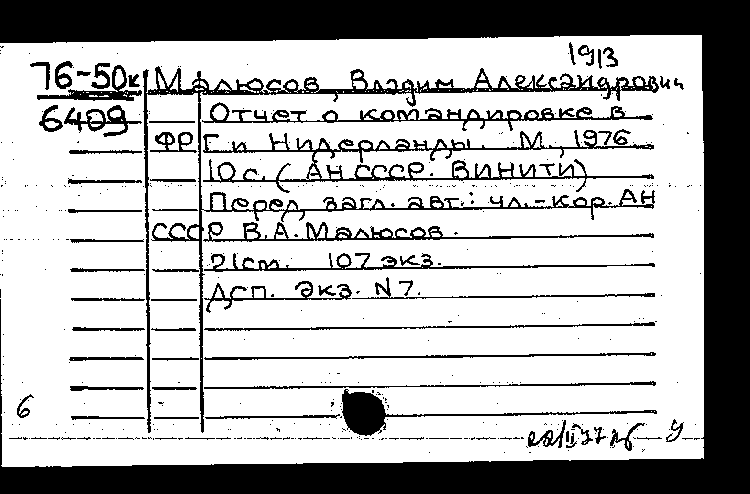 1913
76-50к Малюсов, Владим Александрович
6409 Отчет о командировке в
ФРГ и Нидерланды. М., 1976.
10 с. (АН СССР. ВИНИТИ)
Перед загл. авт.: чл.-кор. АН
СССР В.А. Малюсов.
21 см. 107 экз.
ДСП. Экз. N 7.
6